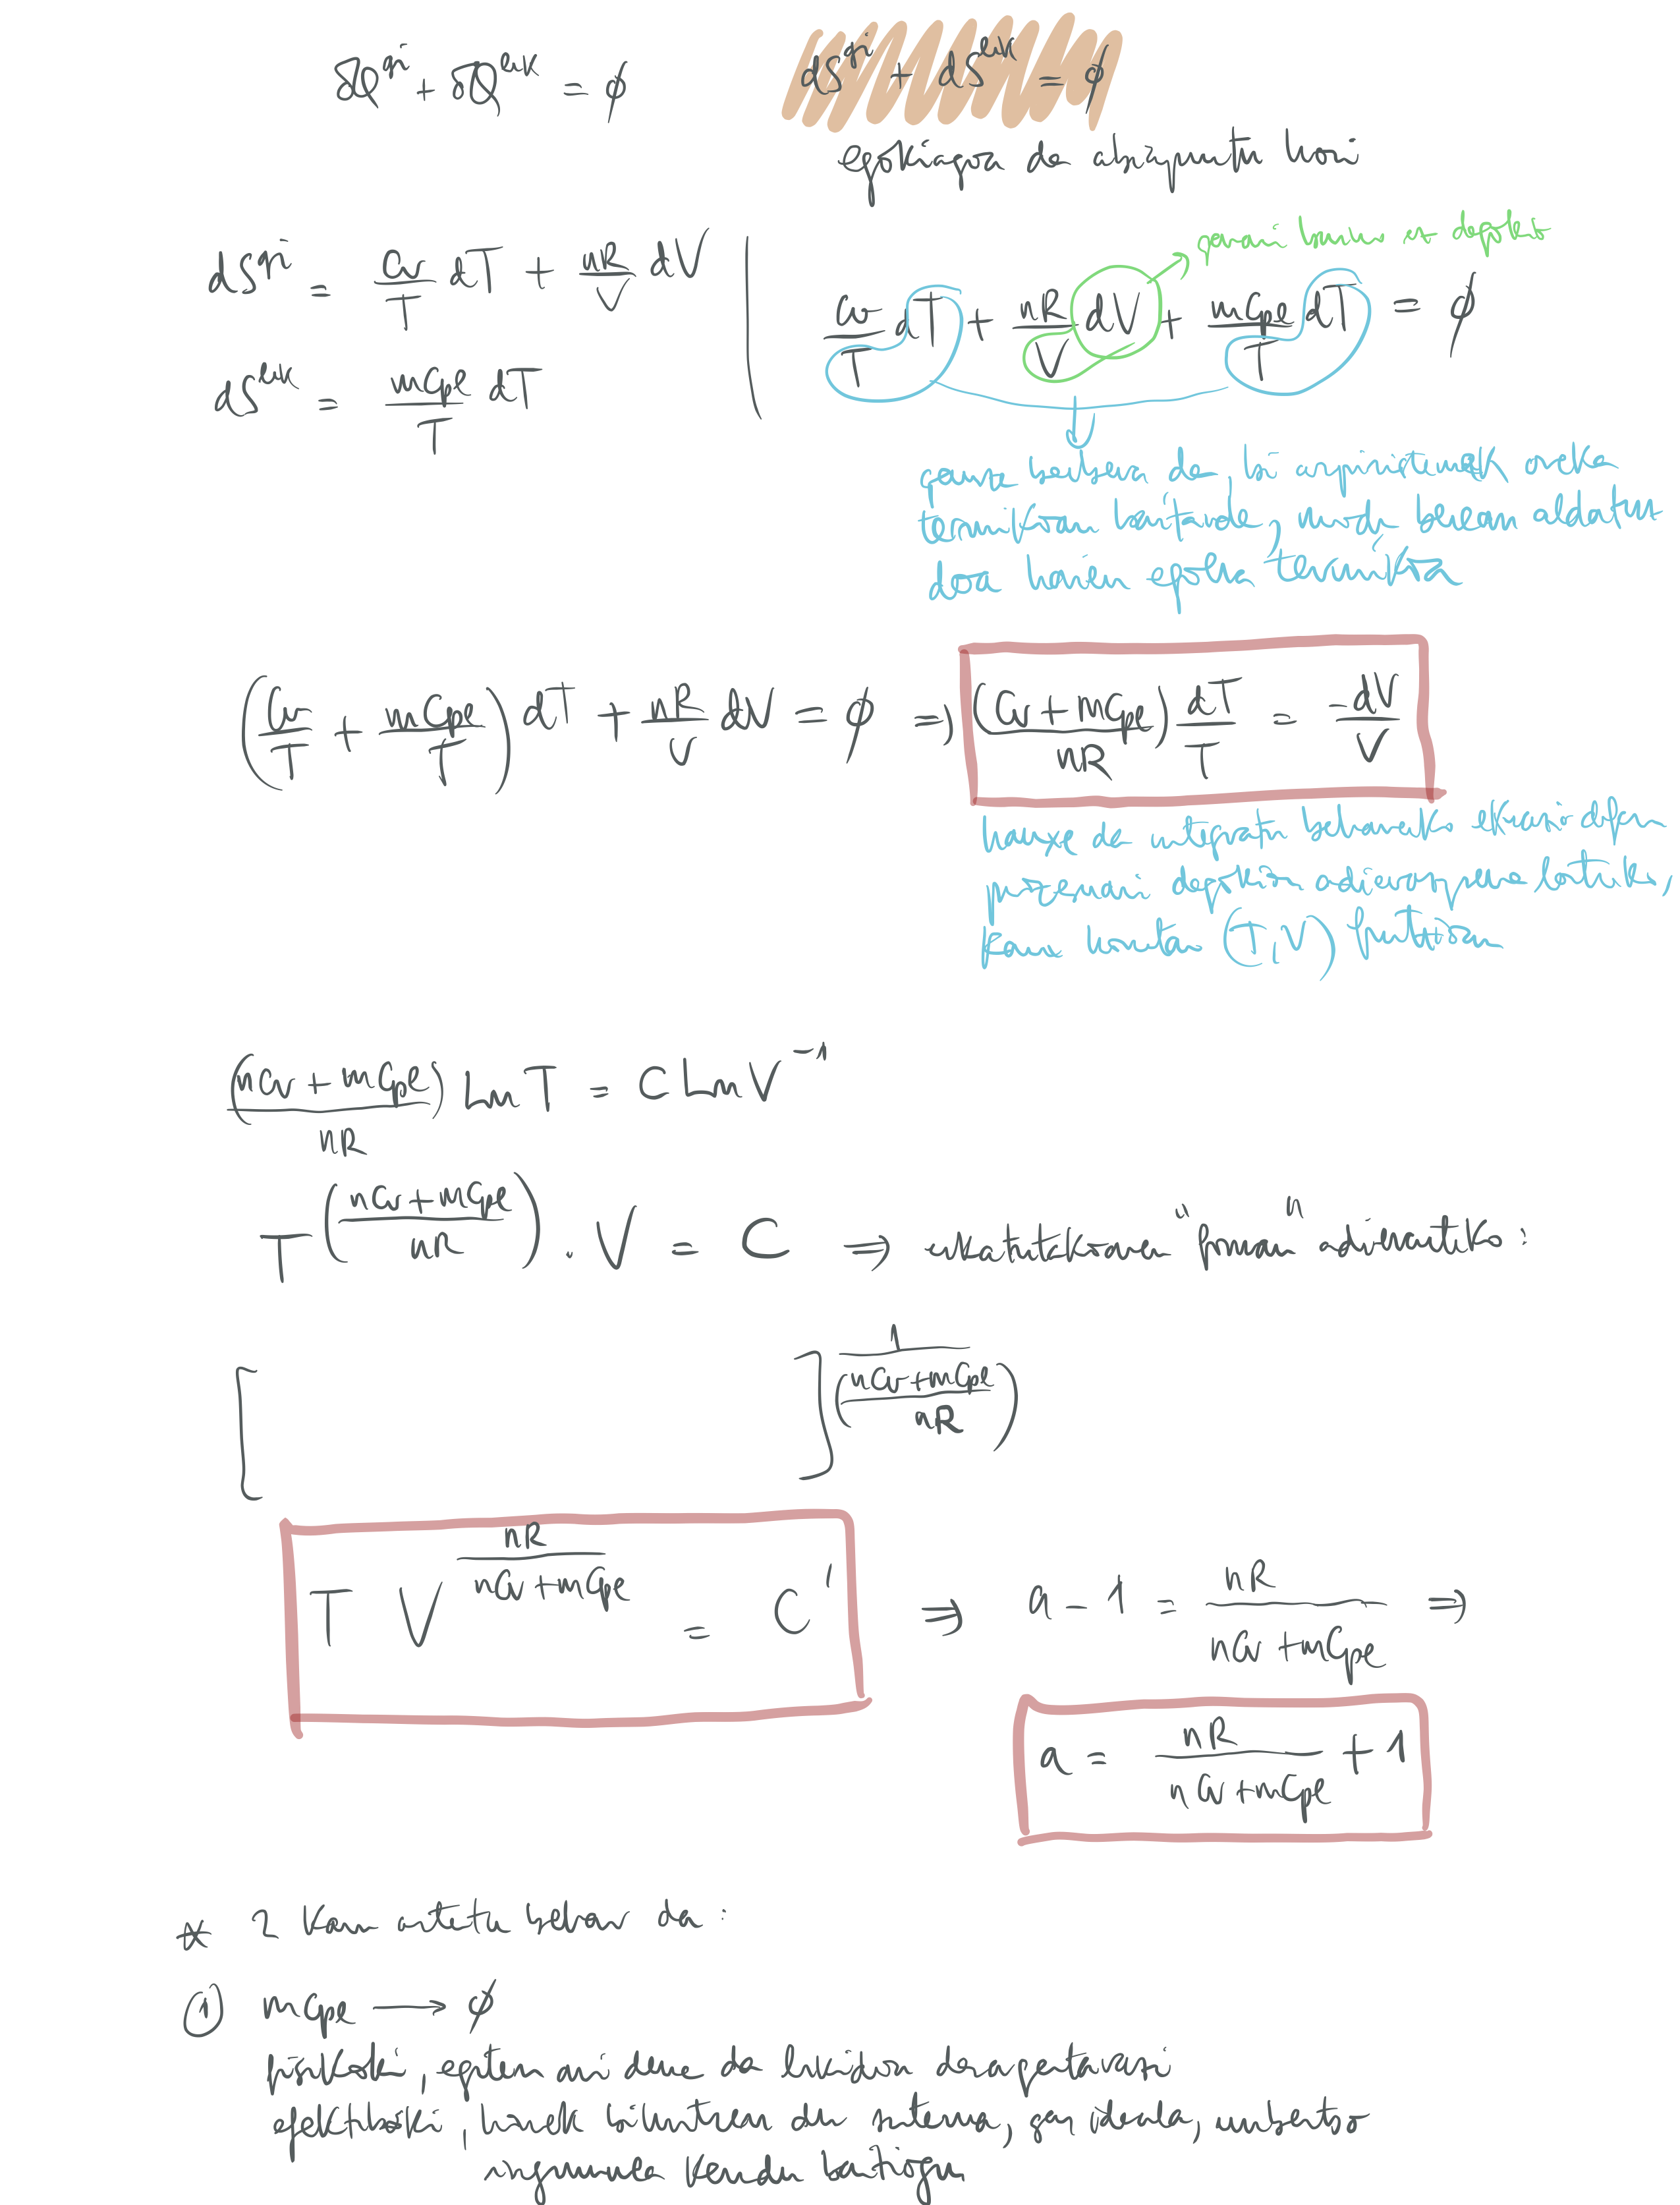 δQ^gi + δQ^lik = ϕ
dS^gi + dS^lik = ϕ
egokiagoa da abiapuntu hori
dS^gi = Cv/T dT + nR/V dV
dS^lik = mCpl/T dT
Cv/T dT + nR/V dV + mCpl/T dT = ϕ
gasari baino ez dagokio
gauza bera da, bi azpisistemak oreka
termikoan baitaude, modu berean aldatzen
doa haien egoera termikoa
(Cv/T + mCpl/T) dT + nR/V dV = ϕ ⇒ (Cv + mCpl / nR) dT/T = -dV/V
hauxe da integratu beharreko ekuazio dif.
prozesuari dagokion adierazpena lortzeko,
kasu honetan (T,V) funtzioan
(nCv + mCpl / nR) Ln T = C Ln V^-1
T^(nCv + mCpl / nR) · V = C ⇒ "forman" adierazteko:
[ ]^1/(nCv + mCpl / nR)
T V^(nR / nCv + mCpl) = C' ⇒ a - 1 = nR / nCv + mCpl ⇒
a = nR / nCv + mCpl + 1
* 2 kasu aztertu behar da:
① mCpl → ϕ
fisikoki, egiten ari dena da likidoa desagertarazi
efektiboki, honek bihurtzen du sistema, gas ideala,
ingurunea kendu baitiogu